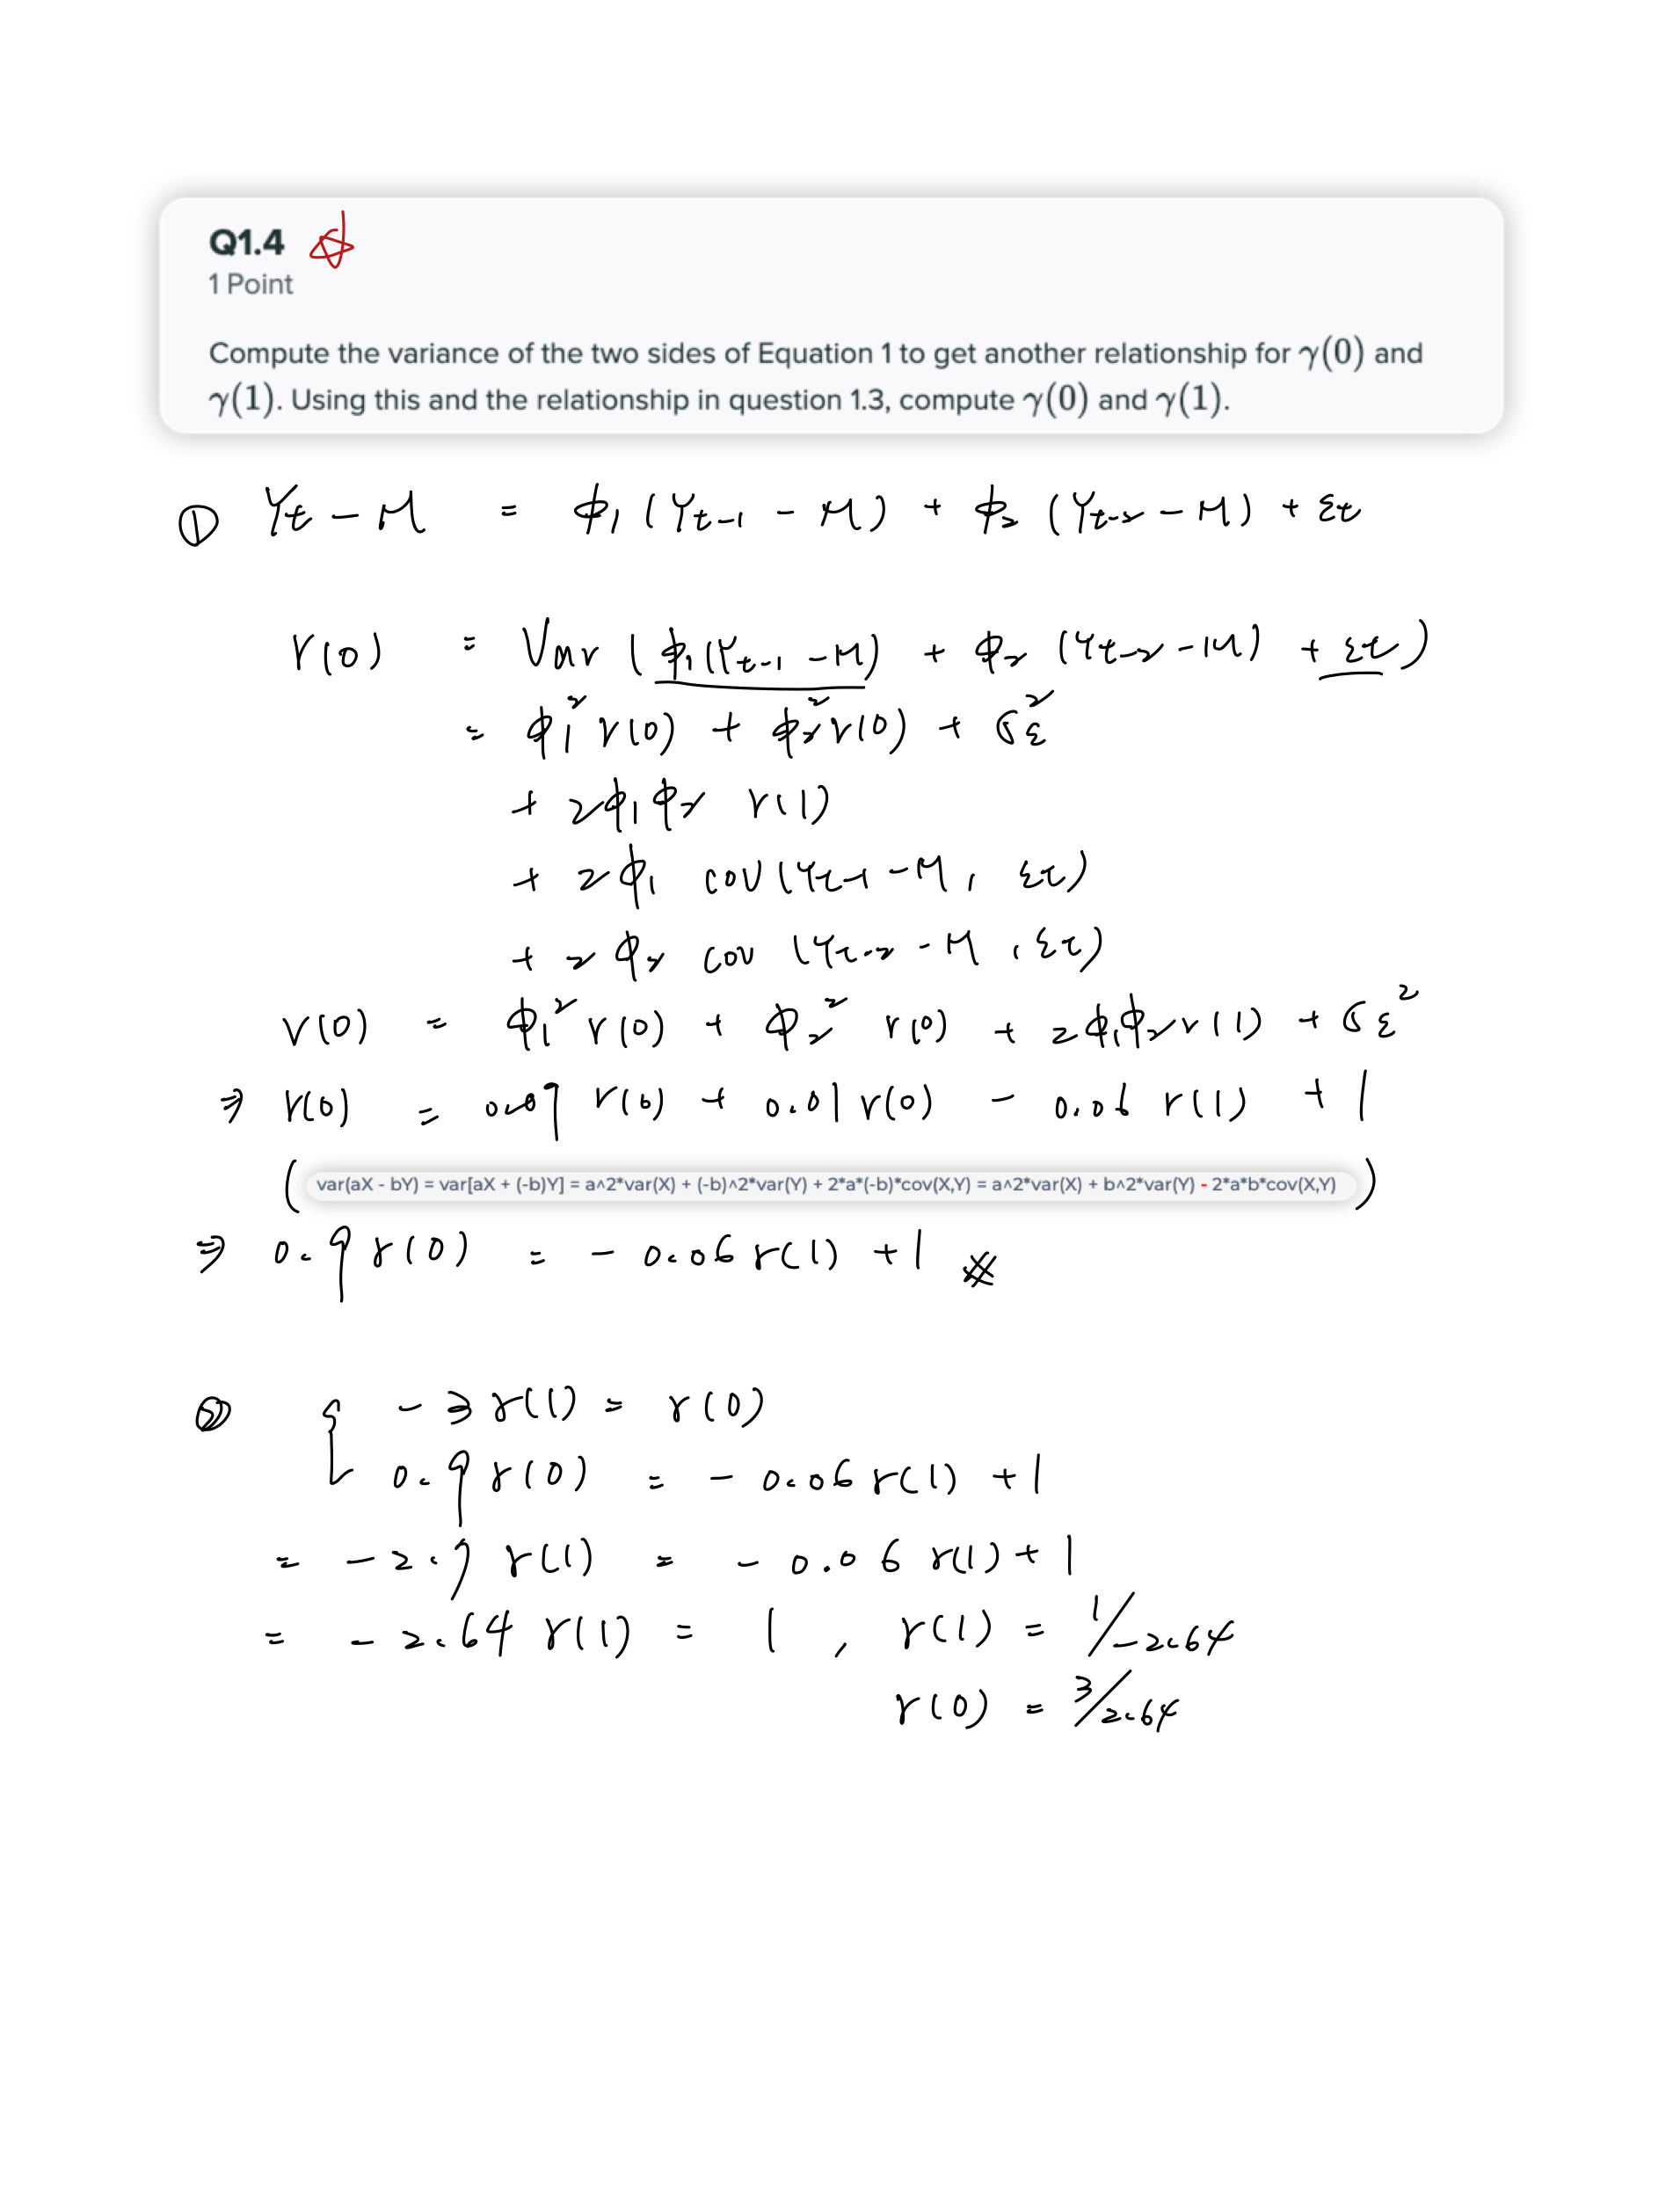 Q1.4
1 Point
Compute the variance of the two sides of Equation 1 to get another relationship for γ(0) and
γ(1). Using this and the relationship in question 1.3, compute γ(0) and γ(1).
① Yt − M = ϕ1 (Yt-1 − M) + ϕ2 (Yt-2 − M) + εt
γ(0) = Var (ϕ1(Yt-1 − M) + ϕ2 (Yt-2 − M) + εt)
= ϕ1² γ(0) + ϕ2² γ(0) + σε²
+ 2ϕ1ϕ2 γ(1)
+ 2ϕ1 cov(Yt-1 − M, εt)
+ 2ϕ2 cov (Yt-2 − M, εt)
γ(0) = ϕ1² γ(0) + ϕ2² γ(0) + 2ϕ1ϕ2 γ(1) + σε²
⇒ γ(0) = 0.09 γ(0) + 0.01 γ(0) − 0.06 γ(1) + 1
( var(aX - bY) = var[aX + (-b)Y] = a^2*var(X) + (-b)^2*var(Y) + 2*a*(-b)*cov(X,Y) = a^2*var(X) + b^2*var(Y) - 2*a*b*cov(X,Y) )
⇒ 0.9 γ(0) = − 0.06 γ(1) + 1 ※
② { − 3 γ(1) = γ(0)
0.9 γ(0) = − 0.06 γ(1) + 1
= − 2.7 γ(1) = − 0.06 γ(1) + 1
= − 2.64 γ(1) = 1 , γ(1) = 1/−2.64
γ(0) = 3/2.64